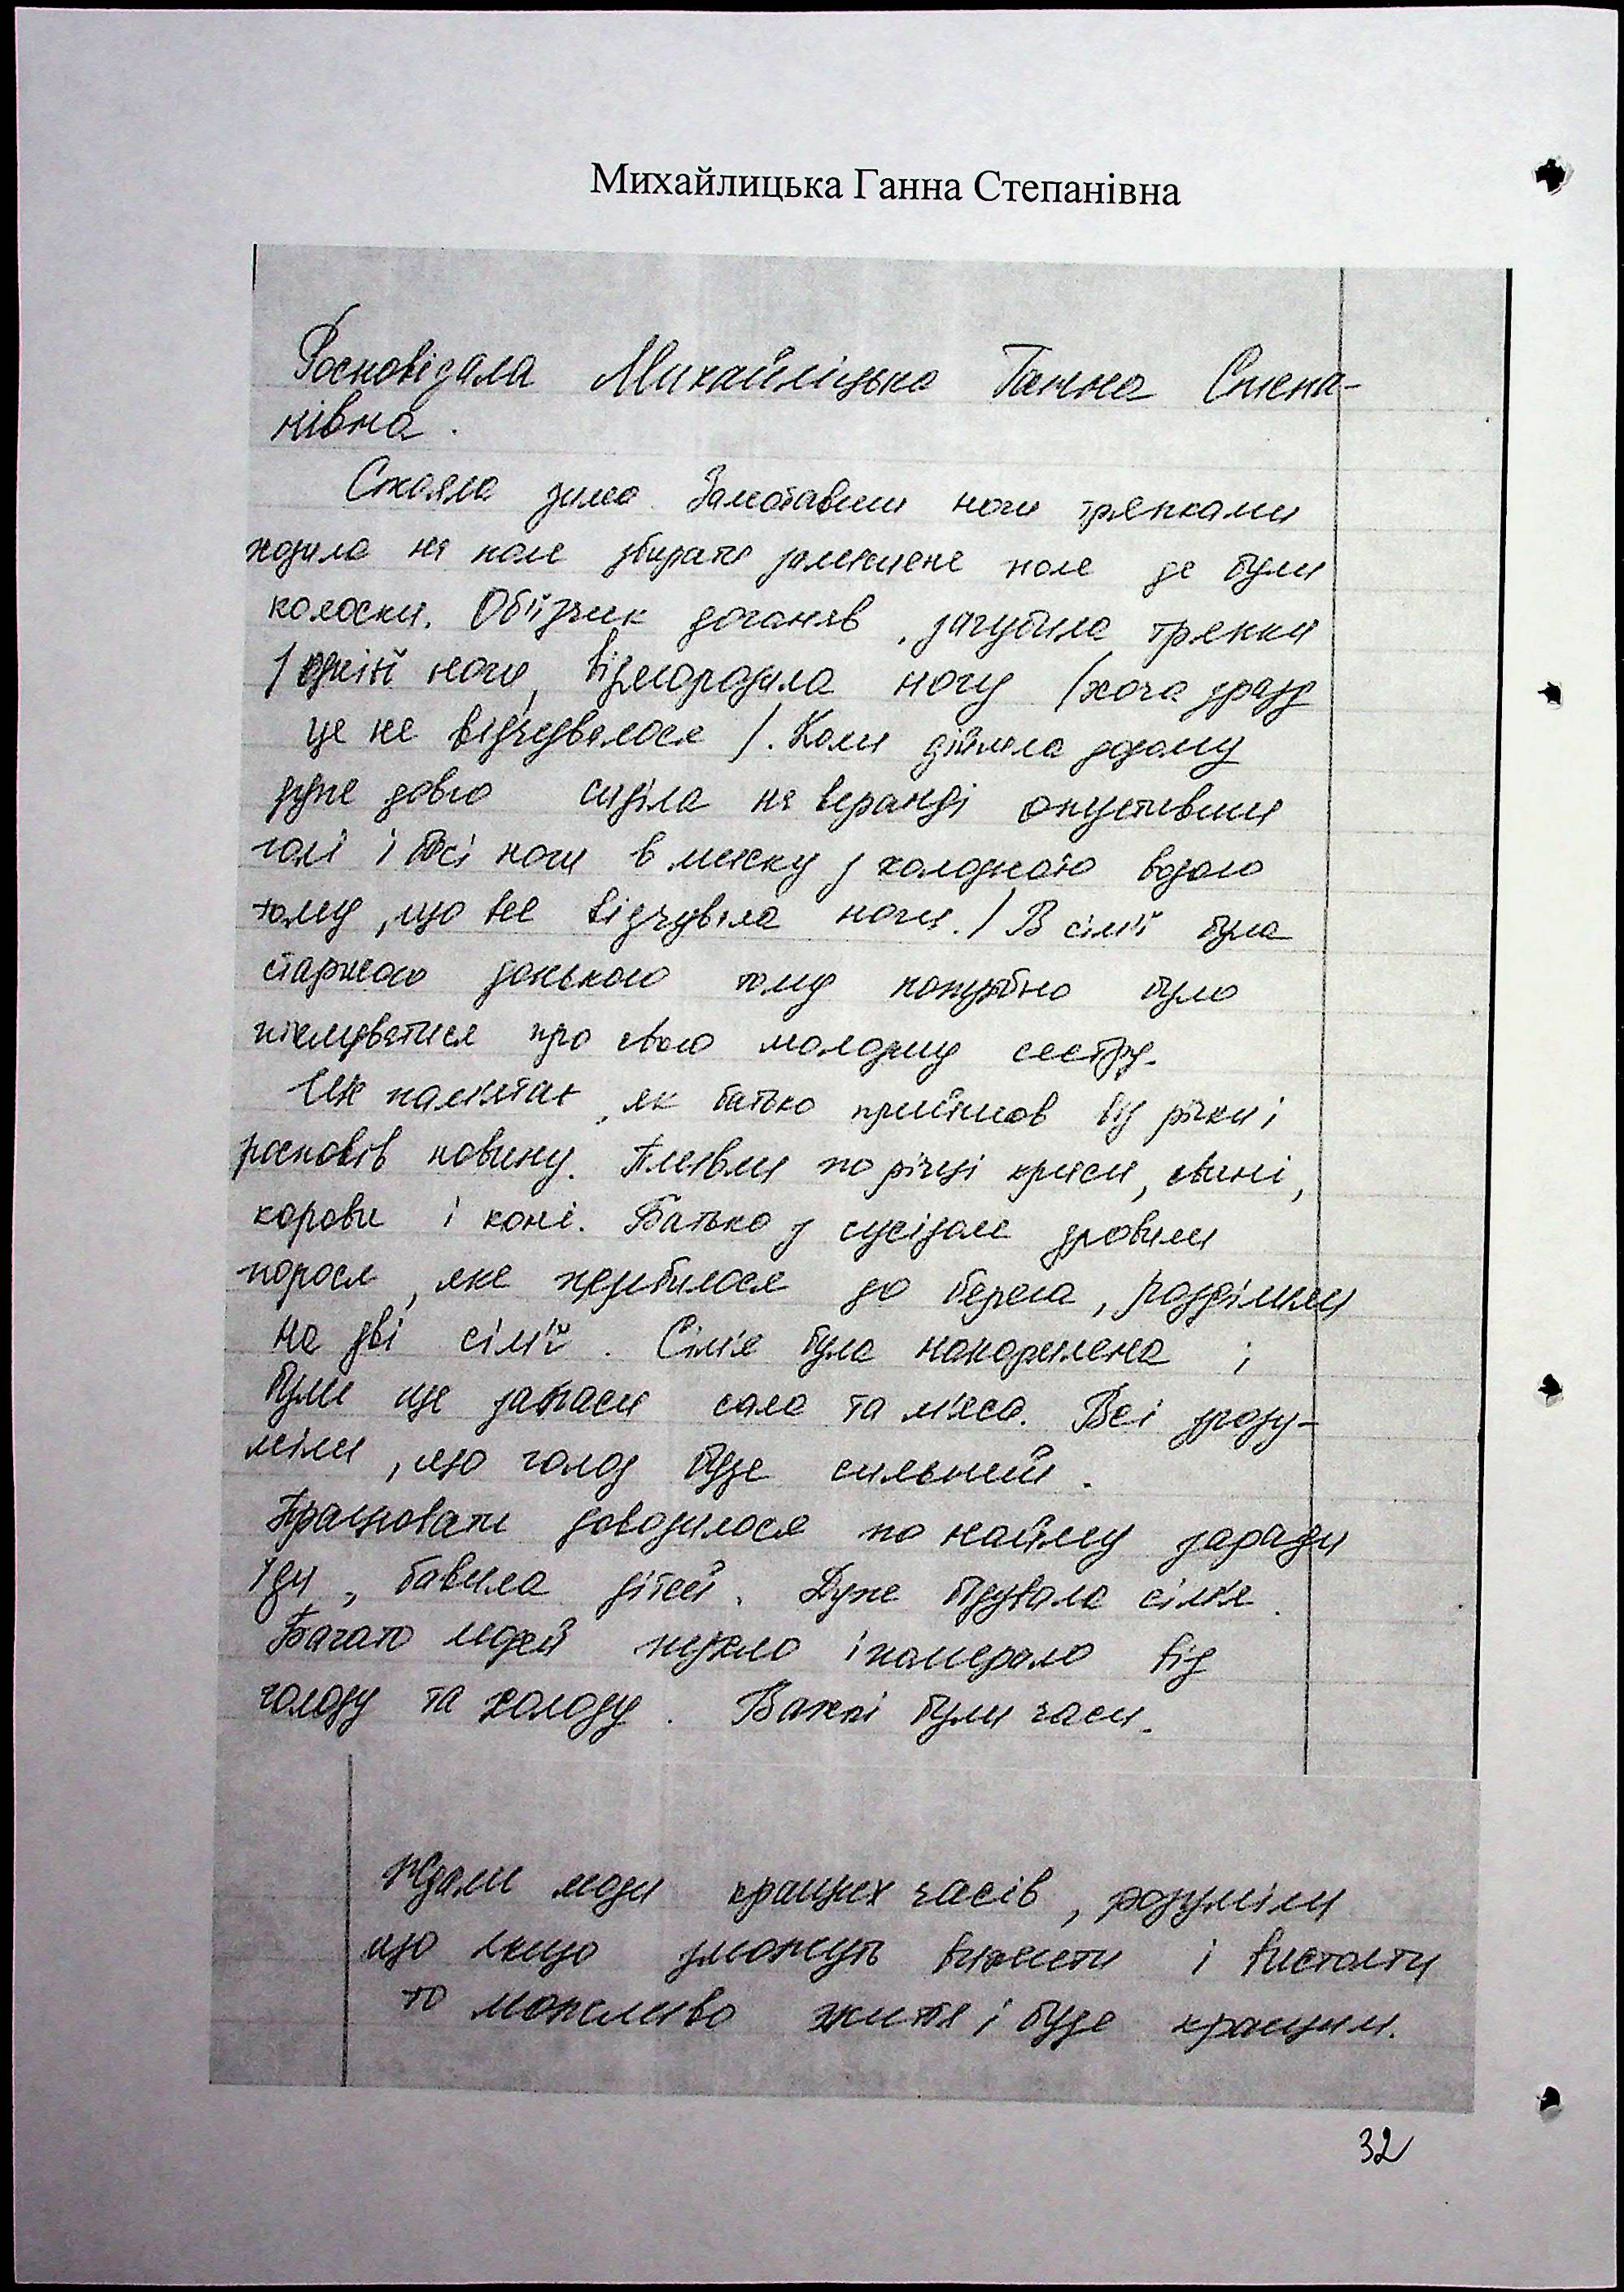 Михайлицька Ганна Степанівна
Росповідала Михайліцька Ганна Степа-
нівна.
Стояла зима. Замотавши ноги тряпками
ходила на поле збирати замезшене поле де були
колоски. Обїзчик доганяв, загубила тряпки
з одній ноги, відморозила ногу /хоча зразу
це не відчувалося/. Коли дійшла додому
дуже довго сиділа на веранді опустивши
голі і босі ноги в миску з холодною водою
тому, що все відчувала ноги./ В сім'ї була
старшою донькою тому потрібно було
піклуватися про свою молодшу сестру.
Ще пам'ятає, як батько прийшов від річки і
росповів новину. Пливли по річці криси, свині,
корови і коні. Батько з сусідом зловили
порося, яке прибилося до берега, розділили
на дві сім'ї. Сім'я була накормлена і
були ще запаси сала та м'яса. Всі зрозу-
міли, що голод буде сильний.
Працювати доводилося по найму заради
їди, бавила дітей. Дуже бідувала сім'я.
Багато людей пухло і помирало від
голоду та холоду. Важкі були часи.
Ждали люди кращих часів, розуміли
що якщо зможуть вижити і вистояти
то можливо життя і буде кращим.
32